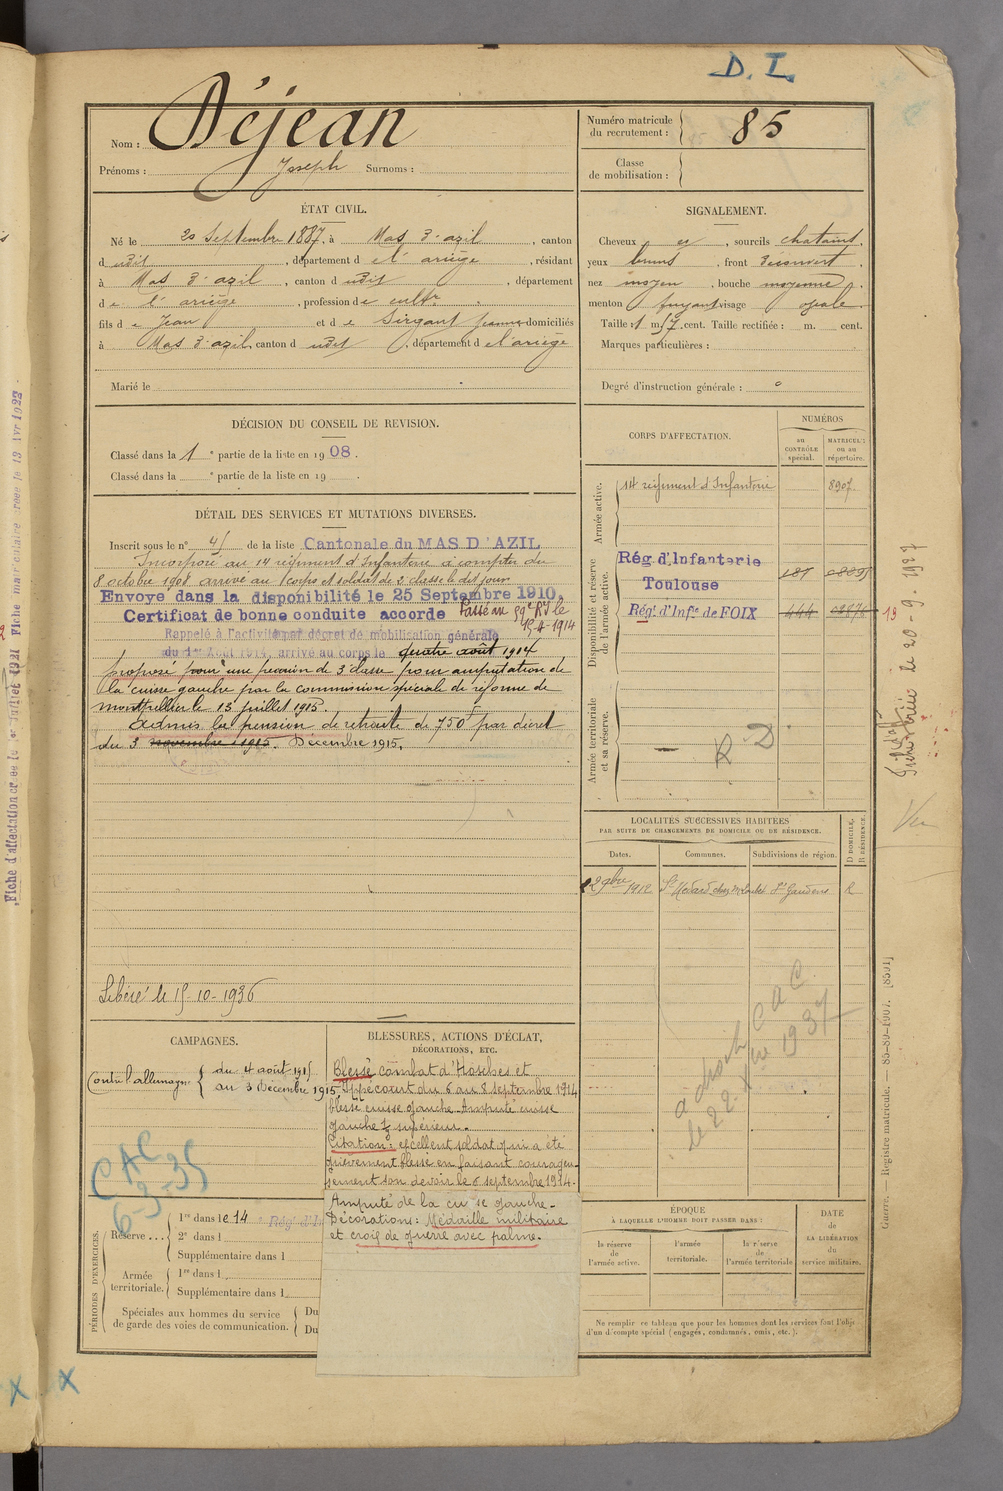 D. I.
Nom : Déjean
Prénoms : Joseph Surnoms :
Numéro matricule du recrutement : 85
Classe de mobilisation :
ÉTAT CIVIL.
Né le 20 Septembre 1887, à Mas d'azil, canton
d udit, département d e l'ariège, résidant
à Mas d'azil, canton d udit, département
d e l'ariège, profession d e cultr
fils d e Jean et d e Sirgant Jeanne domiciliés
à Mas d'azil, canton d udit, département d e l'ariège
Marié le
SIGNALEMENT.
Cheveux et, sourcils chatains,
yeux bruns, front découvert,
nez moyen, bouche moyenne,
menton fuyant visage ovale
Taille : 1 m. 57 cent. Taille rectifiée : m. cent.
Marques particulières :
Degré d'instruction générale :
DÉCISION DU CONSEIL DE REVISION.
Classé dans la 1e partie de la liste en 1908.
Classé dans la e partie de la liste en 19 .
DÉTAIL DES SERVICES ET MUTATIONS DIVERSES.
Inscrit sous le n° 45 de la liste Cantonale du MAS D'AZIL
Incorporé au 14 régiment d'Infanterie à compter du
8 octobre 1908 arrivé au corps et soldat de 2 classe le dit jour
Envoyé dans la disponibilité le 25 Septembre 1910.
Certificat de bonne conduite accordé Passé au 59e R.I. le
15-4-1914
Rappelé à l'activité par décret de mobilisation générale
du 1er Août 1914, arrivé au corps le quatre août 1914
proposé pour une pension de 3e classe pour amputation de
la cuisse gauche par la commission spéciale de réforme de
montpellier le 13 juillet 1915.
Admis la pension de retraite de 750f par décret
du 3 novembre 1915. Décembre 1915.
Libéré le 15-10-1936
CORPS D'AFFECTATION.
NUMÉROS
au CONTRÔLE spécial.
MATRICULE ou au répertoire.
Armée active.
14 régiment d'Infanterie 8907
Disponibilité et réserve de l'armée active.
Rég. d'Infanterie
Toulouse
Rég. d'Infie de FOIX 444
Armée territoriale et sa réserve.
R D
LOCALITÉS SUCCESSIVES HABITÉES
PAR SUITE DE CHANGEMENTS DE DOMICILE OU DE RÉSIDENCE.
Dates. Communes. Subdivisions de région. D DOMICILE. R RÉSIDENCE.
9bre 1912 St Médard St Gaudens R
CAC
le 22 Xbre 1937
CAMPAGNES.
Contre l'allemagne { du 4 août 1915
au 3 Décembre 1915
CAC
6-3-35
BLESSURES, ACTIONS D'ÉCLAT,
DÉCORATIONS, ETC.
Blessé combat d'Hosches et
Oppecourt du 6 au 8 septembre 1914
blessé cuisse gauche. Amputé cuisse
gauche supérieur.
Citation : excellent soldat qui a été
grièvement blessé en faisant courageu-
sement son devoir le 6 septembre 1914.
Amputé de la cuisse gauche.
Décorations : Médaille militaire
et croix de guerre avec palme.
PÉRIODES D'EXERCICES.
Réserve....
1re dans le 14e Rég. d'In
2e dans l
Supplémentaire dans l
Armée territoriale.
1re dans l
Supplémentaire dans l
Spéciales aux hommes du service de garde des voies de communication.
Du
Du
ÉPOQUE
À LAQUELLE L'HOMME DOIT PASSER DANS :
la réserve de l'armée active.
l'armée territoriale.
la réserve de l'armée territoriale
DATE de LA LIBÉRATION du service militaire.
Ne remplir ce tableau que pour les hommes dont les services font l'objet
d'un décompte spécial (engagés, condamnés, omis, etc.).
Guerre. — Registre matricule. — 85-89-1907. [8591]
le 20-9-1927
Vu
Fiche d'affectation créée le 1er Juillet 1921 Fiche matriculaire créée le 13 Avr 1922
X X